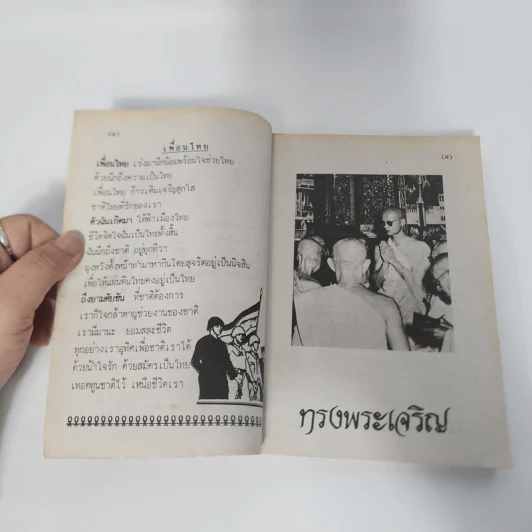 (๔)
เพื่อนไทย
เพื่อนไทย เร่งมานึกน้อมพร้อมใจช่วยไทย
ด้วยนึกถึงความเป็นไทย
เพื่อนไทย ก้าวเดินเจริญสุกใส
ชาติไทยที่รักของเรา
ตัวฉันเกิดมา ใต้ฟ้าเมืองไทย
ชีวิตจิตใจฉันเป็นไทยทั้งสิ้น
ฉันนึกถึงชาติ อยู่ทุกทิวา
มุ่งหวังตั้งหน้าทำมาหากินโดยสุจริตอยู่เป็นนิจสิน
เพื่อให้แผ่นดินไทยคงอยู่เป็นไทย
ถึงยามคับขัน ที่ชาติต้องการ
เราก็ใจกล้าหาญช่วยงานของชาติ
เรามีมานะ ยอมสละชีวิต
ทุกอย่างเราอุทิศเพื่อชาติเราได้
ด้วยน้ำใจรัก ด้วยสมัครเป็นไทย
เทอดทูนชาติไว้ เหนือชีวิตเรา
(๕)
ทรงพระเจริญ